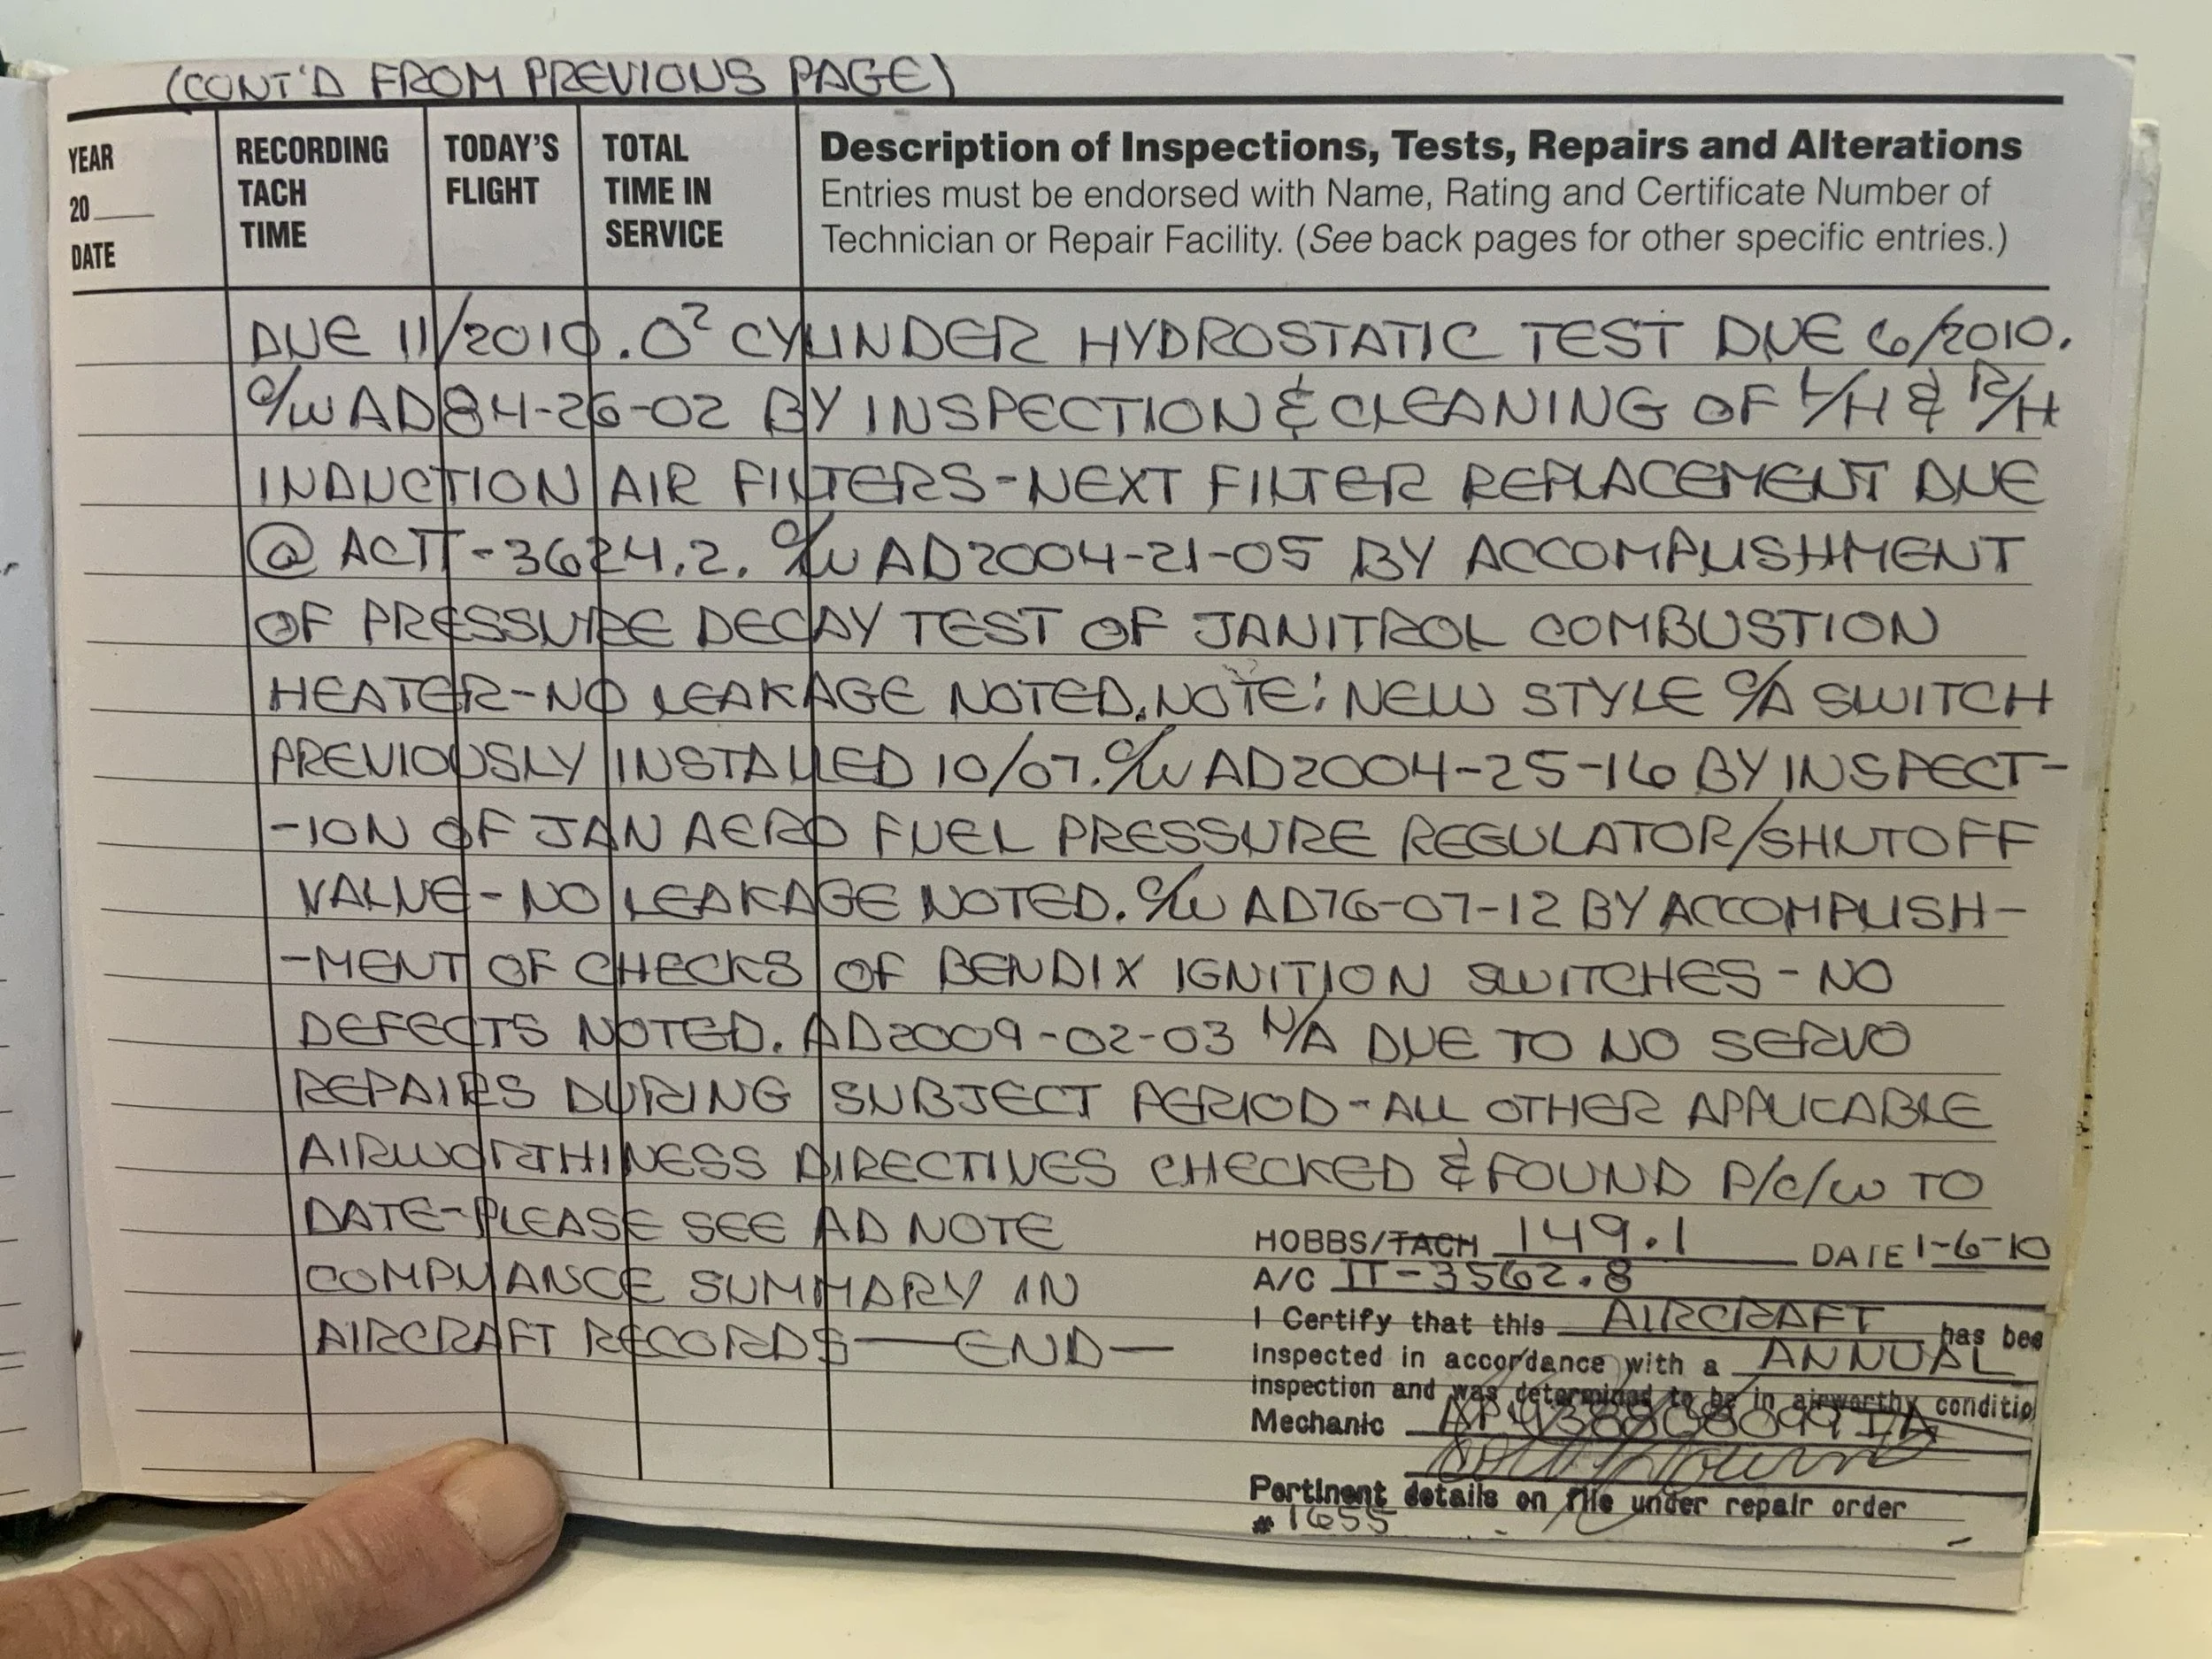 (CONT'D FROM PREVIOUS PAGE)
YEAR
20
DATE
RECORDING
TACH
TIME
TODAY'S
FLIGHT
TOTAL
TIME IN
SERVICE
Description of Inspections, Tests, Repairs and Alterations
Entries must be endorsed with Name, Rating and Certificate Number of
Technician or Repair Facility. (See back pages for other specific entries.)
DUE 11/2010. O² CYLINDER HYDROSTATIC TEST DUE 6/2010.
C/W AD84-26-02 BY INSPECTION & CLEANING OF L/H & R/H
INDUCTION AIR FILTERS-NEXT FILTER REPLACEMENT DUE
@ ACTT-3624.2. C/W AD2004-21-05 BY ACCOMPLISHMENT
OF PRESSURE DECAY TEST OF JANITROL COMBUSTION
HEATER-NO LEAKAGE NOTED. NOTE: NEW STYLE C/A SWITCH
PREVIOUSLY INSTALLED 10/07. C/W AD2004-25-16 BY INSPECT-
-ION OF JAN AERO FUEL PRESSURE REGULATOR/SHUTOFF
VALVE-NO LEAKAGE NOTED. C/W AD76-07-12 BY ACCOMPLISH-
-MENT OF CHECKS OF BENDIX IGNITION SWITCHES-NO
DEFECTS NOTED. AD2009-02-03 N/A DUE TO NO SERVO
REPAIRS DURING SUBJECT PERIOD-ALL OTHER APPLICABLE
AIRWORTHINESS DIRECTIVES CHECKED & FOUND P/C/W TO
DATE-PLEASE SEE AD NOTE
COMPLIANCE SUMMARY IN
AIRCRAFT RECORDS—END—
HOBBS/TACH 149.1 DATE 1-6-10
A/C TT-3562.8
I Certify that this AIRCRAFT has bee
inspected in accordance with a ANNUAL
inspection and was determined to be in airworthy conditio
Mechanic
Pertinent details on file under repair order
# 1655